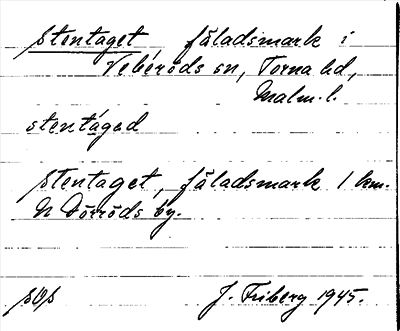 Stentaget fäladsmark i
Vebéröds sn, Torna hd,
Malm. l.
stentáged
Stentaget, fäladsmark 1 km.
N Dörröds by.
sOs J. Friberg 1945.